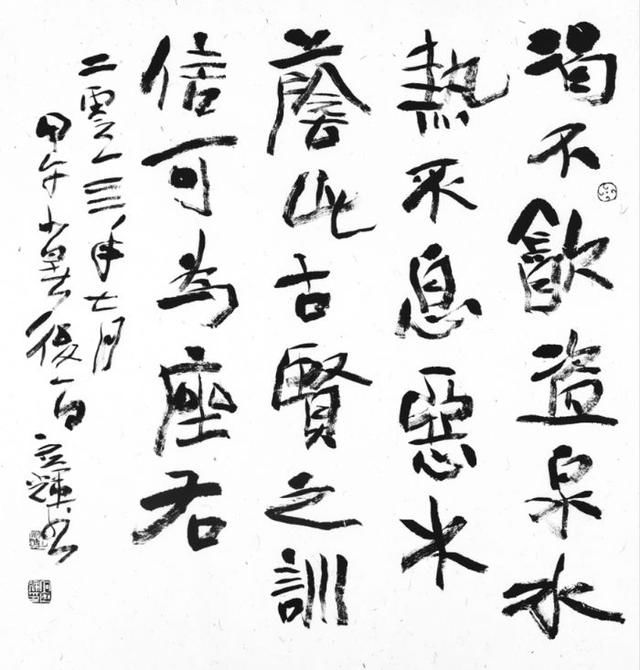 渴不飲盜泉水
熱不息惡木
蔭此古賢之訓
信可為座右
二零一亖年七月
甲午小暑後一日 輝书